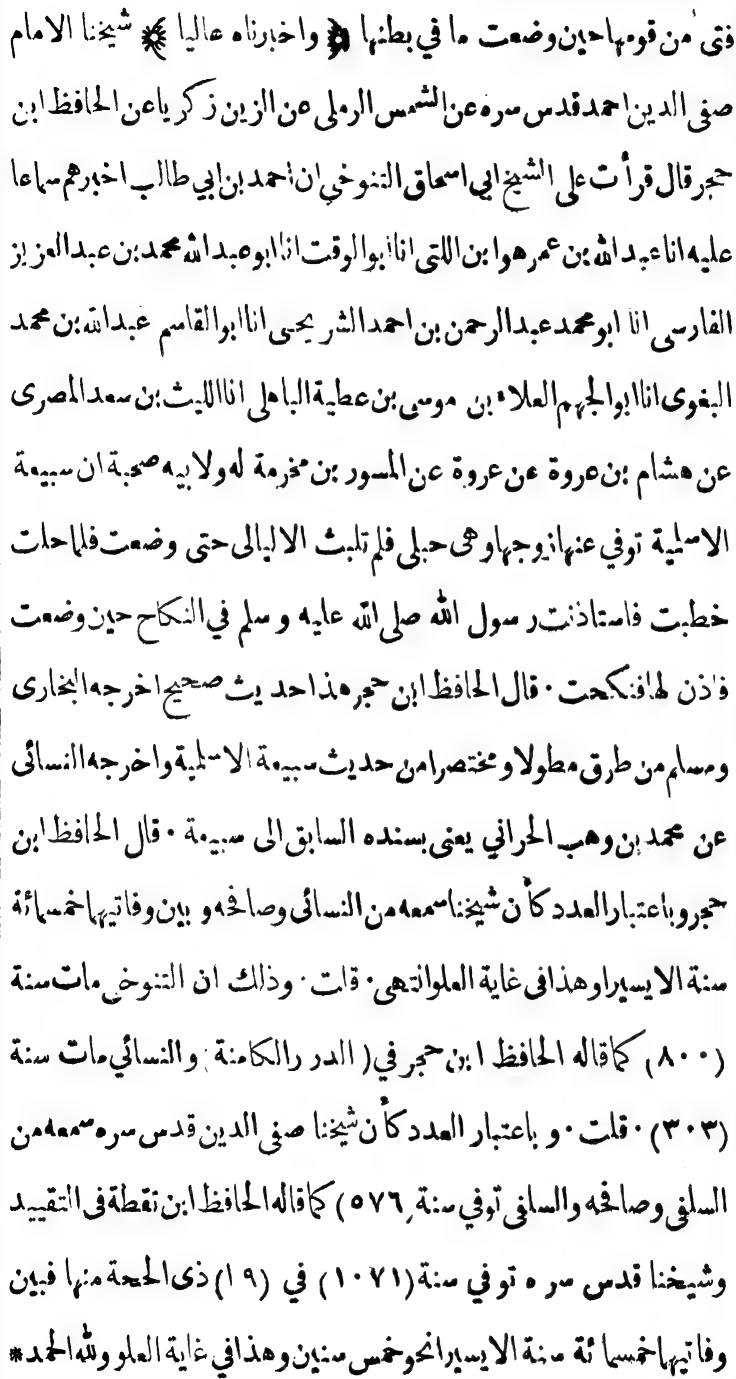 فتى من قومها حين وضعت ما في بطنها ﴿ واخبرناه عاليا ﴾ شيخنا الامام
صفى الدين احمد قدس سره عن الشمس الرملى عن الزين زكريا عن الحافظ ابن
حجر قال قرأت على الشيخ ابي اسحاق التنوخي ان احمد بن ابي طالب اخبرهم سماعا
عليه انا عبد الله بن عمر هو ابن اللتى انا ابو الوقت انا ابو عبد الله محمد بن عبد العزيز
الفارسى انا ابو محمد عبد الرحمن بن احمد الشريحى انا ابو القاسم عبد الله بن محمد
البغوى انا ابو الجهم العلاء بن موسى بن عطية الباهلى انا الليث بن سعد المصرى
عن هشام بن عروة عن عروة عن المسور بن مخرمة له ولابيه صحبة ان سبيعة
الاسلمية توفي عنها زوجها وهى حبلى فلم تلبث الا ليالى حتى وضعت فلما حلت
خطبت فاستاذنت رسول الله صلى الله عليه وسلم في النكاح حين وضعت
فاذن لها فنكحت · قال الحافظ ابن حجر هذا حديث صحيح اخرجه البخارى
ومسلم من طرق مطولا ومختصرا من حديث سبيعة الاسلمية واخرجه النسائى
عن محمد بن وهب الحراني يعنى بسنده السابق الى سبيعة · قال الحافظ ابن
حجر وباعتبار العدد كأن شيخنا سمعه من النسائى وصافحه و بين وفاتيهما خمسمائة
سنة الا يسيرا وهذا فى غاية العلو انتهى · قلت · وذلك ان التنوخي مات سنة
(٨٠٠) كما قاله الحافظ ابن حجر في (الدرر الكامنة) والنسائي مات سنة
(٣٠٣) · قلت · و باعتبار العدد كأن شيخنا صفى الدين قدس سره سمعه من
السلفى وصافحه والسلفى توفي سنة (٥٧٦) كما قاله الحافظ ابن نقطة فى التقييد
وشيخنا قدس سره توفي سنة (١٠٧١) في (١٩) ذى الحجة منها فبين
وفاتيهما خمسمائة سنة الا يسيرا نحو خمس سنين وهذا في غاية العلو ولله الحمد *